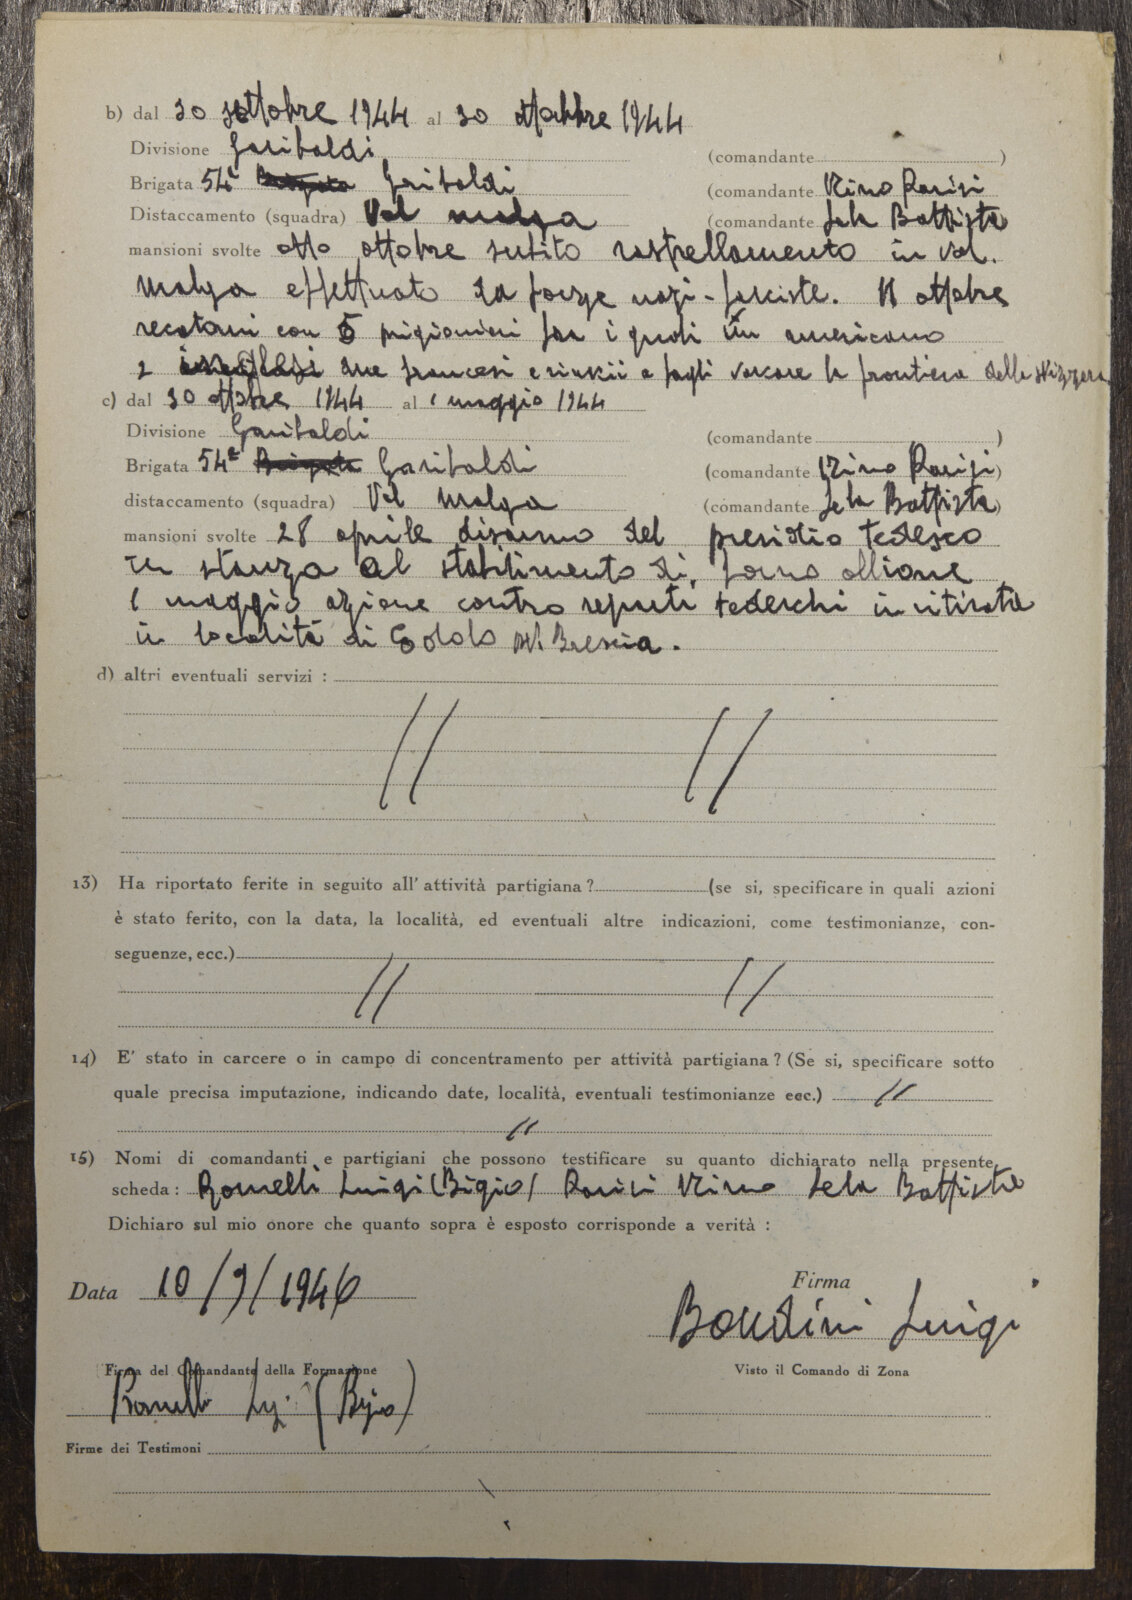 b) dal 30 settobre 1944 al 30 ottobre 1944
Divisione Garibaldi (comandante )
Brigata 54ª Brigata Garibaldi (comandante Nino Parisi
Distaccamento (squadra) Val malga (comandante Sela Battista
mansioni svolte otto ottobre subito rastrellamento in val.
malga effettuato da forze nazi-fasciste. 11 ottobre
recatomi con 5 prigionieri fra i quali un americano
2 inglesi due francesi e a fagli varcare la frontiera della svizzera
c) dal 30 ottobre 1944 al 1 maggio 1944
Divisione Garibaldi (comandante )
Brigata 54ª Brigata Garibaldi (comandante Nino Parisi)
distaccamento (squadra) Val malga (comandante Sela Battista)
mansioni svolte 28 aprile disarmo del presidio tedesco
in stanza al stabilimento di, forno allione
1 maggio azione contro reparti tedeschi in ritirata
in località di Edolo Brescia.
d) altri eventuali servizi :
// //
13) Ha riportato ferite in seguito all' attività partigiana ? (se si, specificare in quali azioni
è stato ferito, con la data, la località, ed eventuali altre indicazioni, come testimonianze, con-
seguenze, ecc.)
// //
14) E' stato in carcere o in campo di concentramento per attività partigiana ? (Se si, specificare sotto
quale precisa imputazione, indicando date, località, eventuali testimonianze ecc.) //
//
15) Nomi di comandanti e partigiani che possono testificare su quanto dichiarato nella presente
scheda : Romelli Luigi (Bigio) Parisi Nino Sela Battista
Dichiaro sul mio onore che quanto sopra è esposto corrisponde a verità :
Data 10/9/1946
Firma
Bondini Luigi
Firma del Comandante della Formazione
Visto il Comando di Zona
Romelli (Bigio)
Firme dei Testimoni